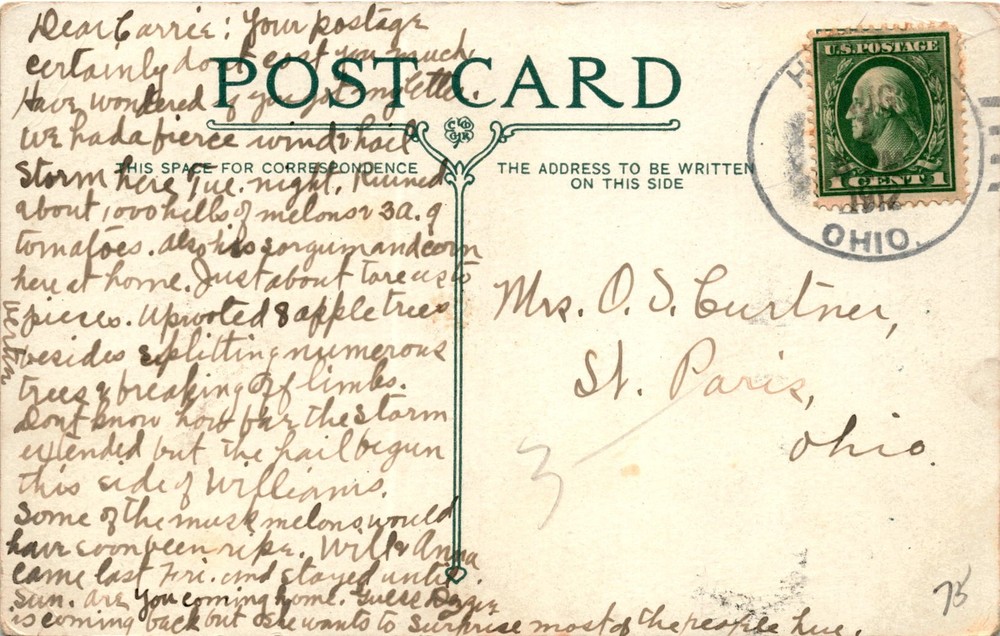 Dear Carrie: Your postage
certainly don't cost you much.
Have wondered if you got my letter.
We had a fierce wind & hail
storm here Tue. night. Ruined
about 1000 hills of melons & 3 a. of
tomatoes. also his sorgum and corn
here at home. Just about tore us to
pieces. Uprooted 8 apple trees
besides splitting numerous
trees & breaking off limbs.
Dont know how far the storm
extended but the hail begun
this side of Williams.
Some of the musk melons would
have soon been ripe. Will & Anna
came last Fri. and stayed until
Sun. are you coming home. Guess
is coming back but wants to surprise most of the people here.
POST CARD
THIS SPACE FOR CORRESPONDENCE
THE ADDRESS TO BE WRITTEN
ON THIS SIDE
U.S. POSTAGE
1 CENT 1
1912
OHIO.
Mrs. O. S. Curtner,
St. Paris,
Ohio.
75